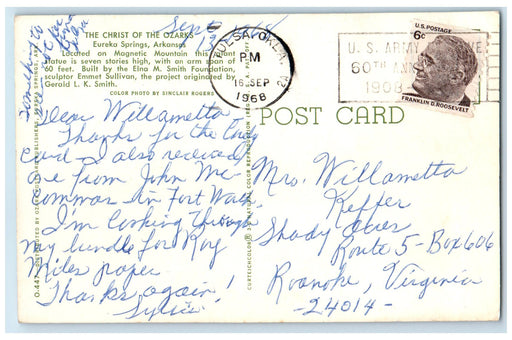 THE CHRIST OF THE OZARKS
Eureka Springs, Arkansas
Located on Magnetic Mountain this giant
statue is seven stories high, with an arm span of
60 feet. Built by the Elna M. Smith Foundation,
sculptor Emmet Sullivan, the project originated by
Gerald L. K. Smith.
COLOR PHOTO BY SINCLAIR ROGERS
Dear Willametta
Thanks for the Cody
Card - I also received
one from John Mc-
Commas in Fort Worth.
I'm looking through
my bundle for Roy
Miles paper.
Thanks again!
Sylvis
TULSA, OKLA.
PM
16 SEP
1968
U. S. ARMY
60TH
1908
U.S. POSTAGE
6c
FRANKLIN D. ROOSEVELT
POST CARD
Mrs. Willametta
Keffer
Shady Acres
Route 5 - Box 606
Roanoke, Virginia
24014 -